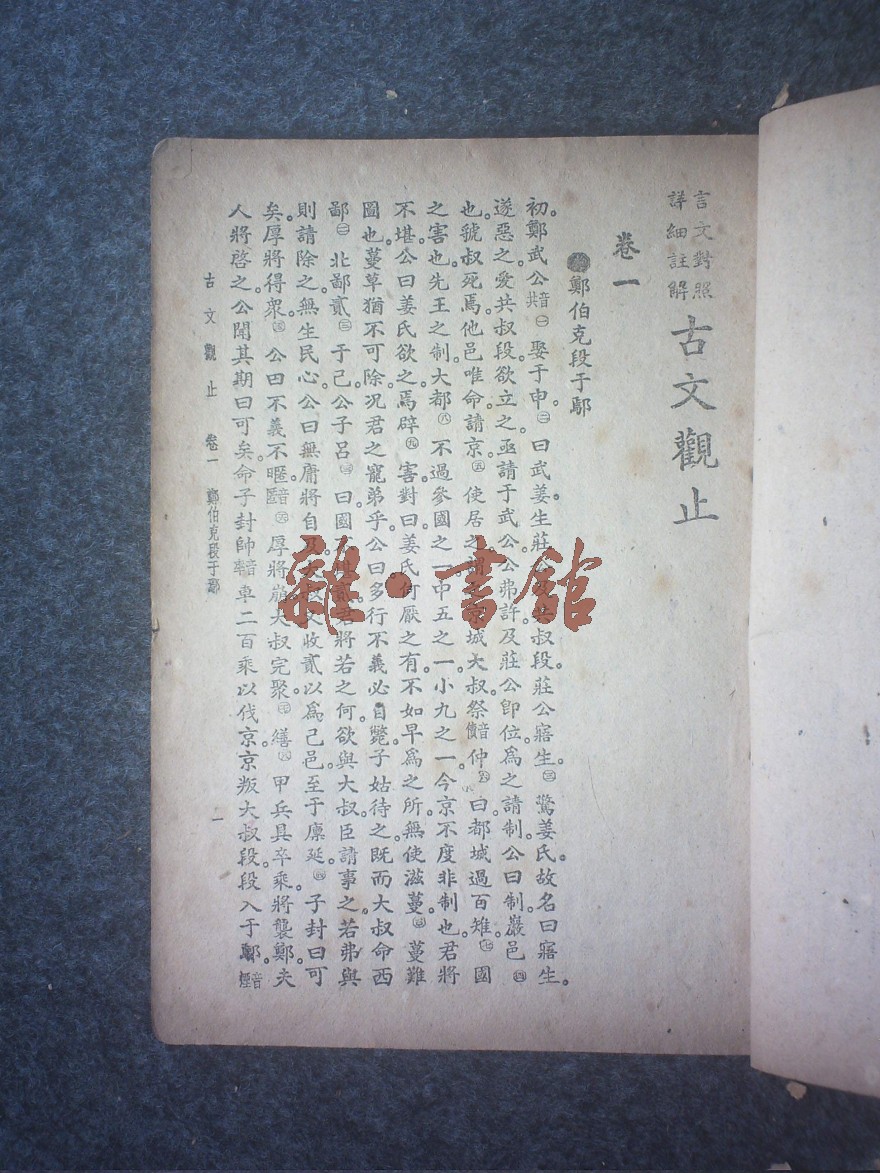 言文對照
詳細註解
古文觀止
卷一
鄭伯克段于鄢
初。鄭武公共音㊀娶于申。㊁曰武姜生莊叔段。莊公寤生。㊂驚姜氏。故名曰寤生。
遂惡之。愛共叔段。欲立之。亟請于武公。公弗許。及莊公卽位。爲之請制。公曰。制。巖邑㊃
也。虢叔死焉。他邑唯命。請京。㊄使居之。城大叔。祭音債仲㊅曰。都城過百雉。㊆國
之害也。先王之制。大都㊇不過參國之一。中五之一。小九之一。今京不度。非制也。君將
不堪。公曰。姜氏欲之。焉辟㊈害。對曰。姜氏何厭之有。不如早爲之所。無使滋蔓。蔓難
圖也。蔓草猶不可除。況君之寵弟乎。公曰。多行不義必自斃。子姑待之。既而大叔命西
鄙㊀北鄙貳㊁于己。公子呂㊂曰。國君將若之何。欲與大叔。臣請事之。若弗與。
則請除之。無生民心。公曰。無庸。將自及。大叔又收貳以爲己邑。至于廩延。㊃子封曰。可
矣。厚將得衆。㊄公曰。不義不暱。音匿㊅厚將崩。大叔完聚。㊆繕㊇甲兵。具卒乘。將襲鄭。夫
人將啓之。公聞其期。曰。可矣。命子封帥音率車二百乘以伐京。京叛大叔段。段入于鄢。音煙
古文觀止 卷一 鄭伯克段于鄢
一
雜·書館